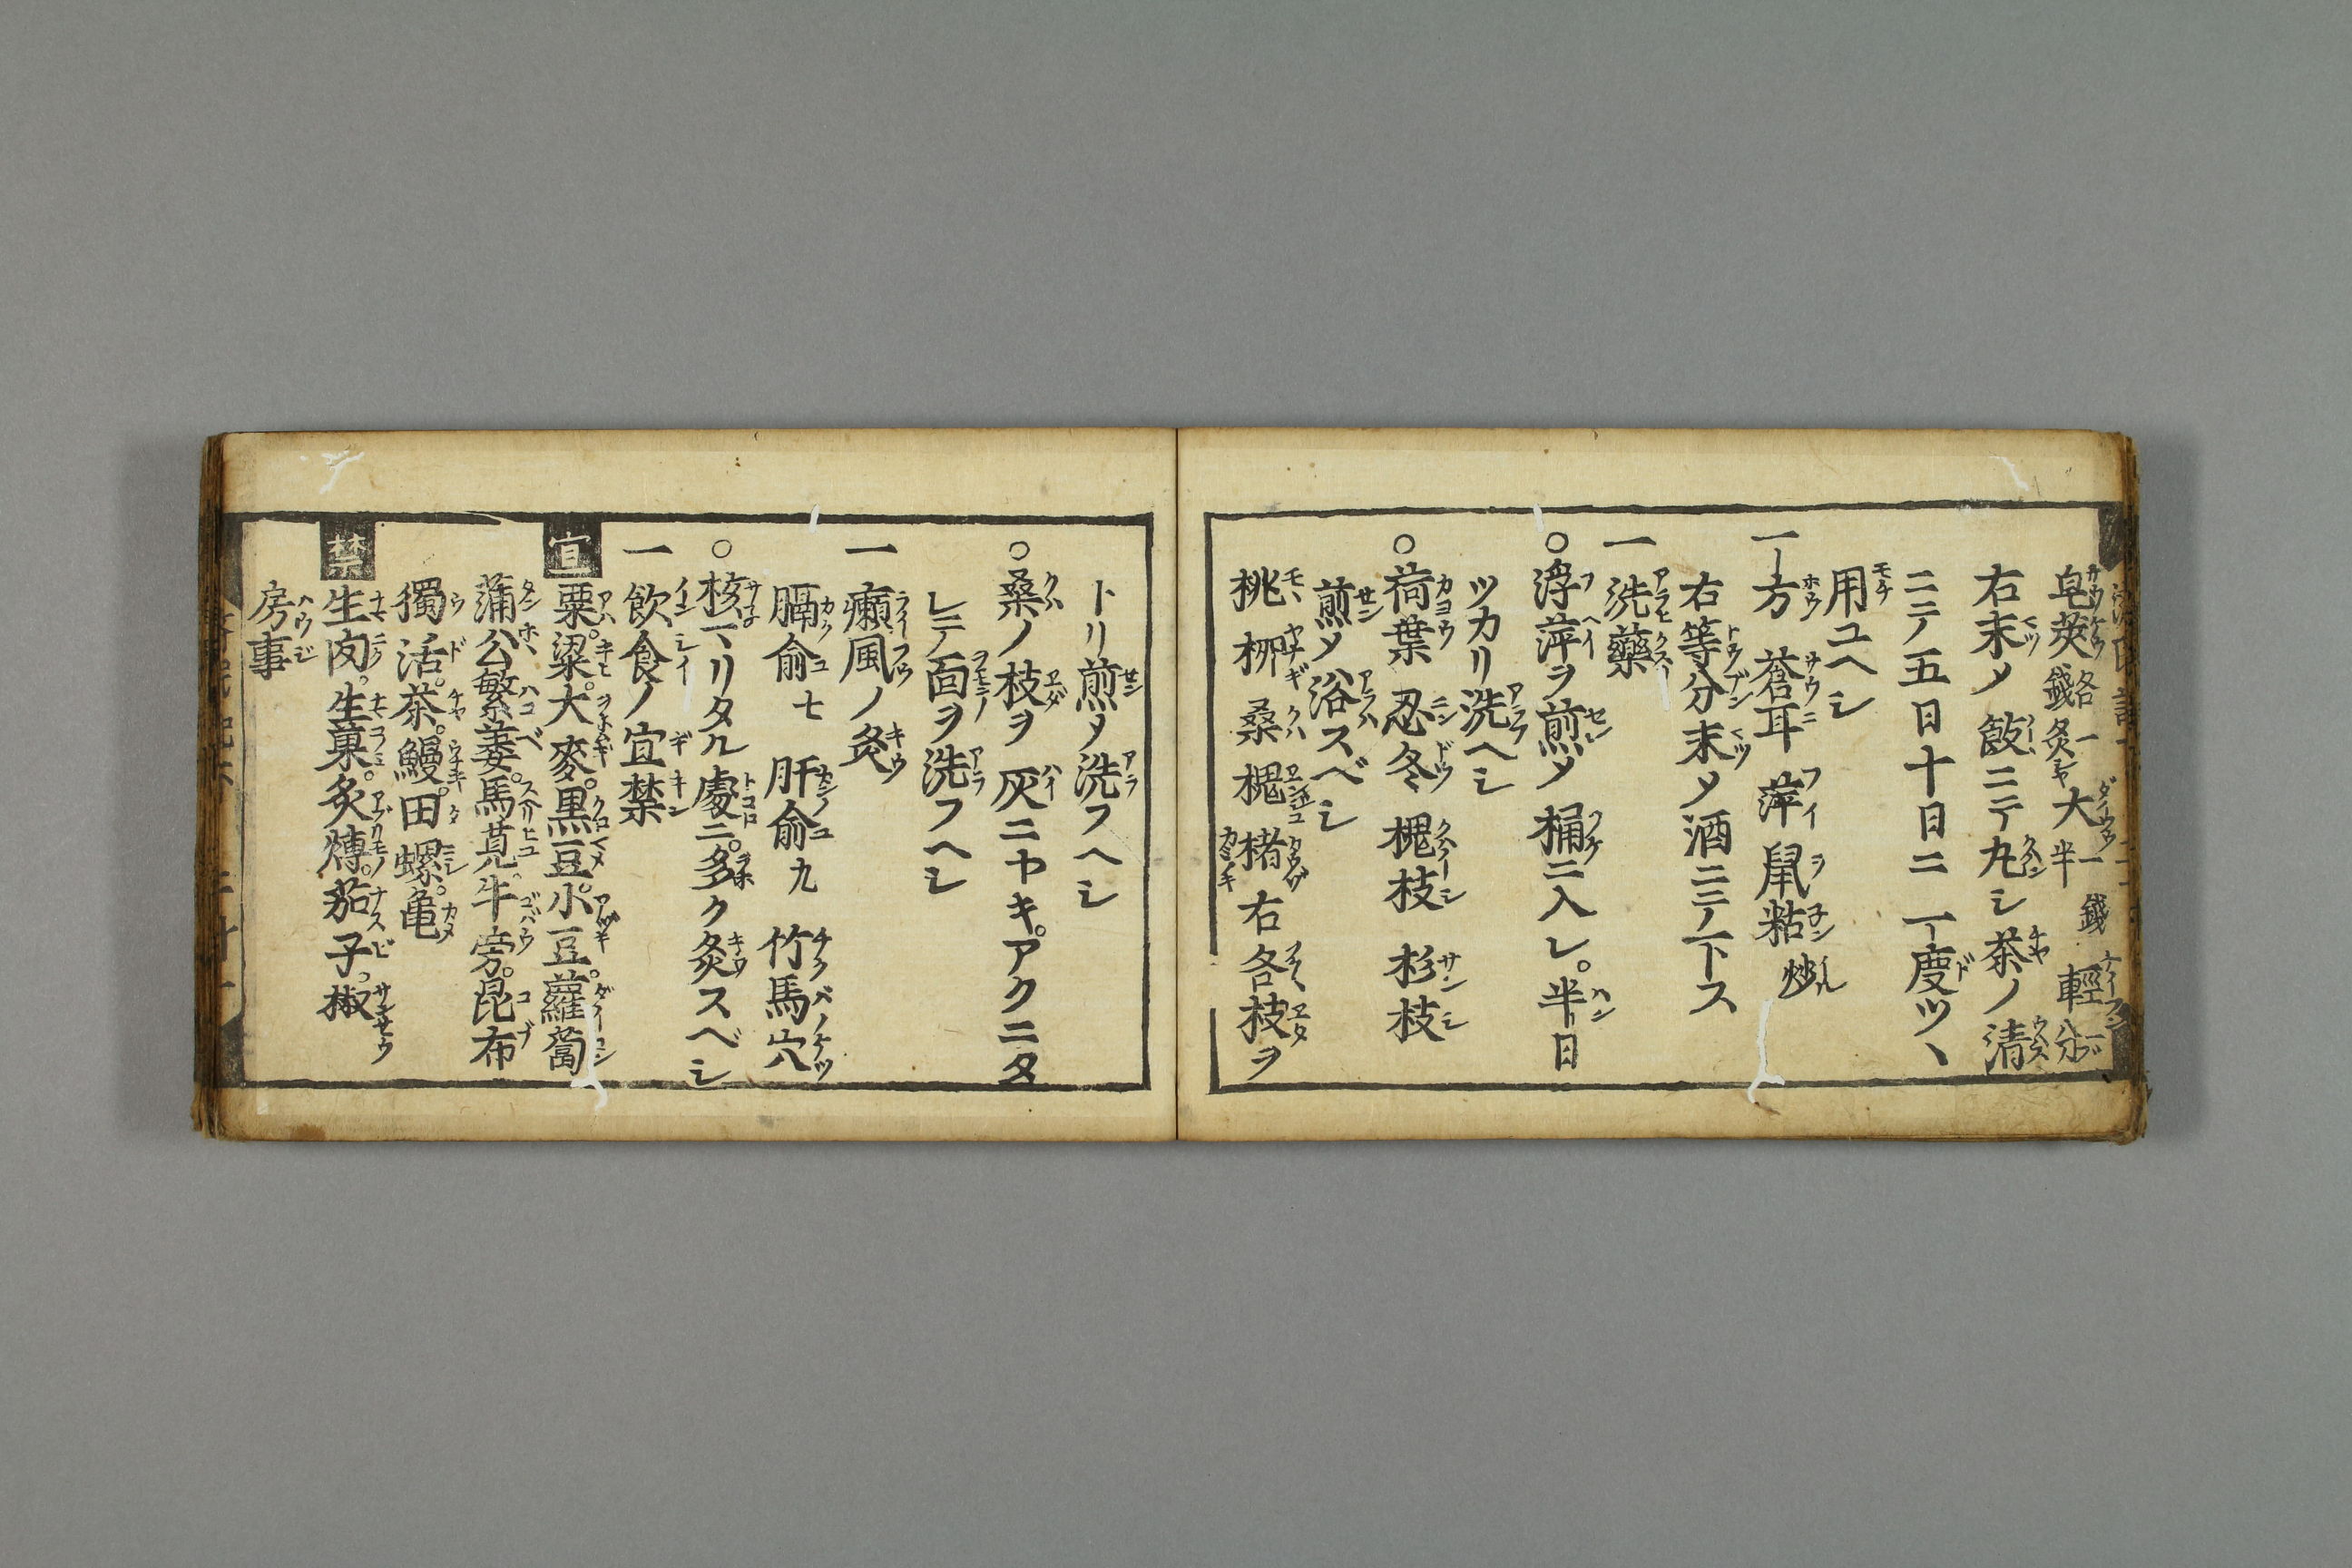 皂莢各一錢炙大半一錢輕分一
右末メ飯ニテ丸シ茶ノ清
ニテ五日十日ニ一度ツヽ
用ユヘシ
一方 蒼耳 萍 鼠粘炒
右等分末メ酒ニテ下ス
一洗藥
○浮萍ヲ煎メ桶ニ入レ。半日
ツカリ洗ヘシ
○荷葉 忍冬 槐枝 杉枝
煎メ浴スベシ
桃 柳 桑 槐 楮 右各枝ヲ
トリ煎メ洗フヘシ
○桑ノ枝ヲ灰ニヤキ。アクニタ
レテ面ヲ洗フヘシ
一癩風ノ灸
膈俞七 肝俞九 竹馬穴
○核マリタル處ニ。多ク灸スベシ
一飲食ノ宜禁
宜 粟。粱。大麥。黒豆。小豆。蘿蔔
蒲公繁蔞。馬莧。牛旁。昆布
獨活。茶。鰻。田螺。亀
禁 生肉。生菓。炙煿。茄子。椒
房事